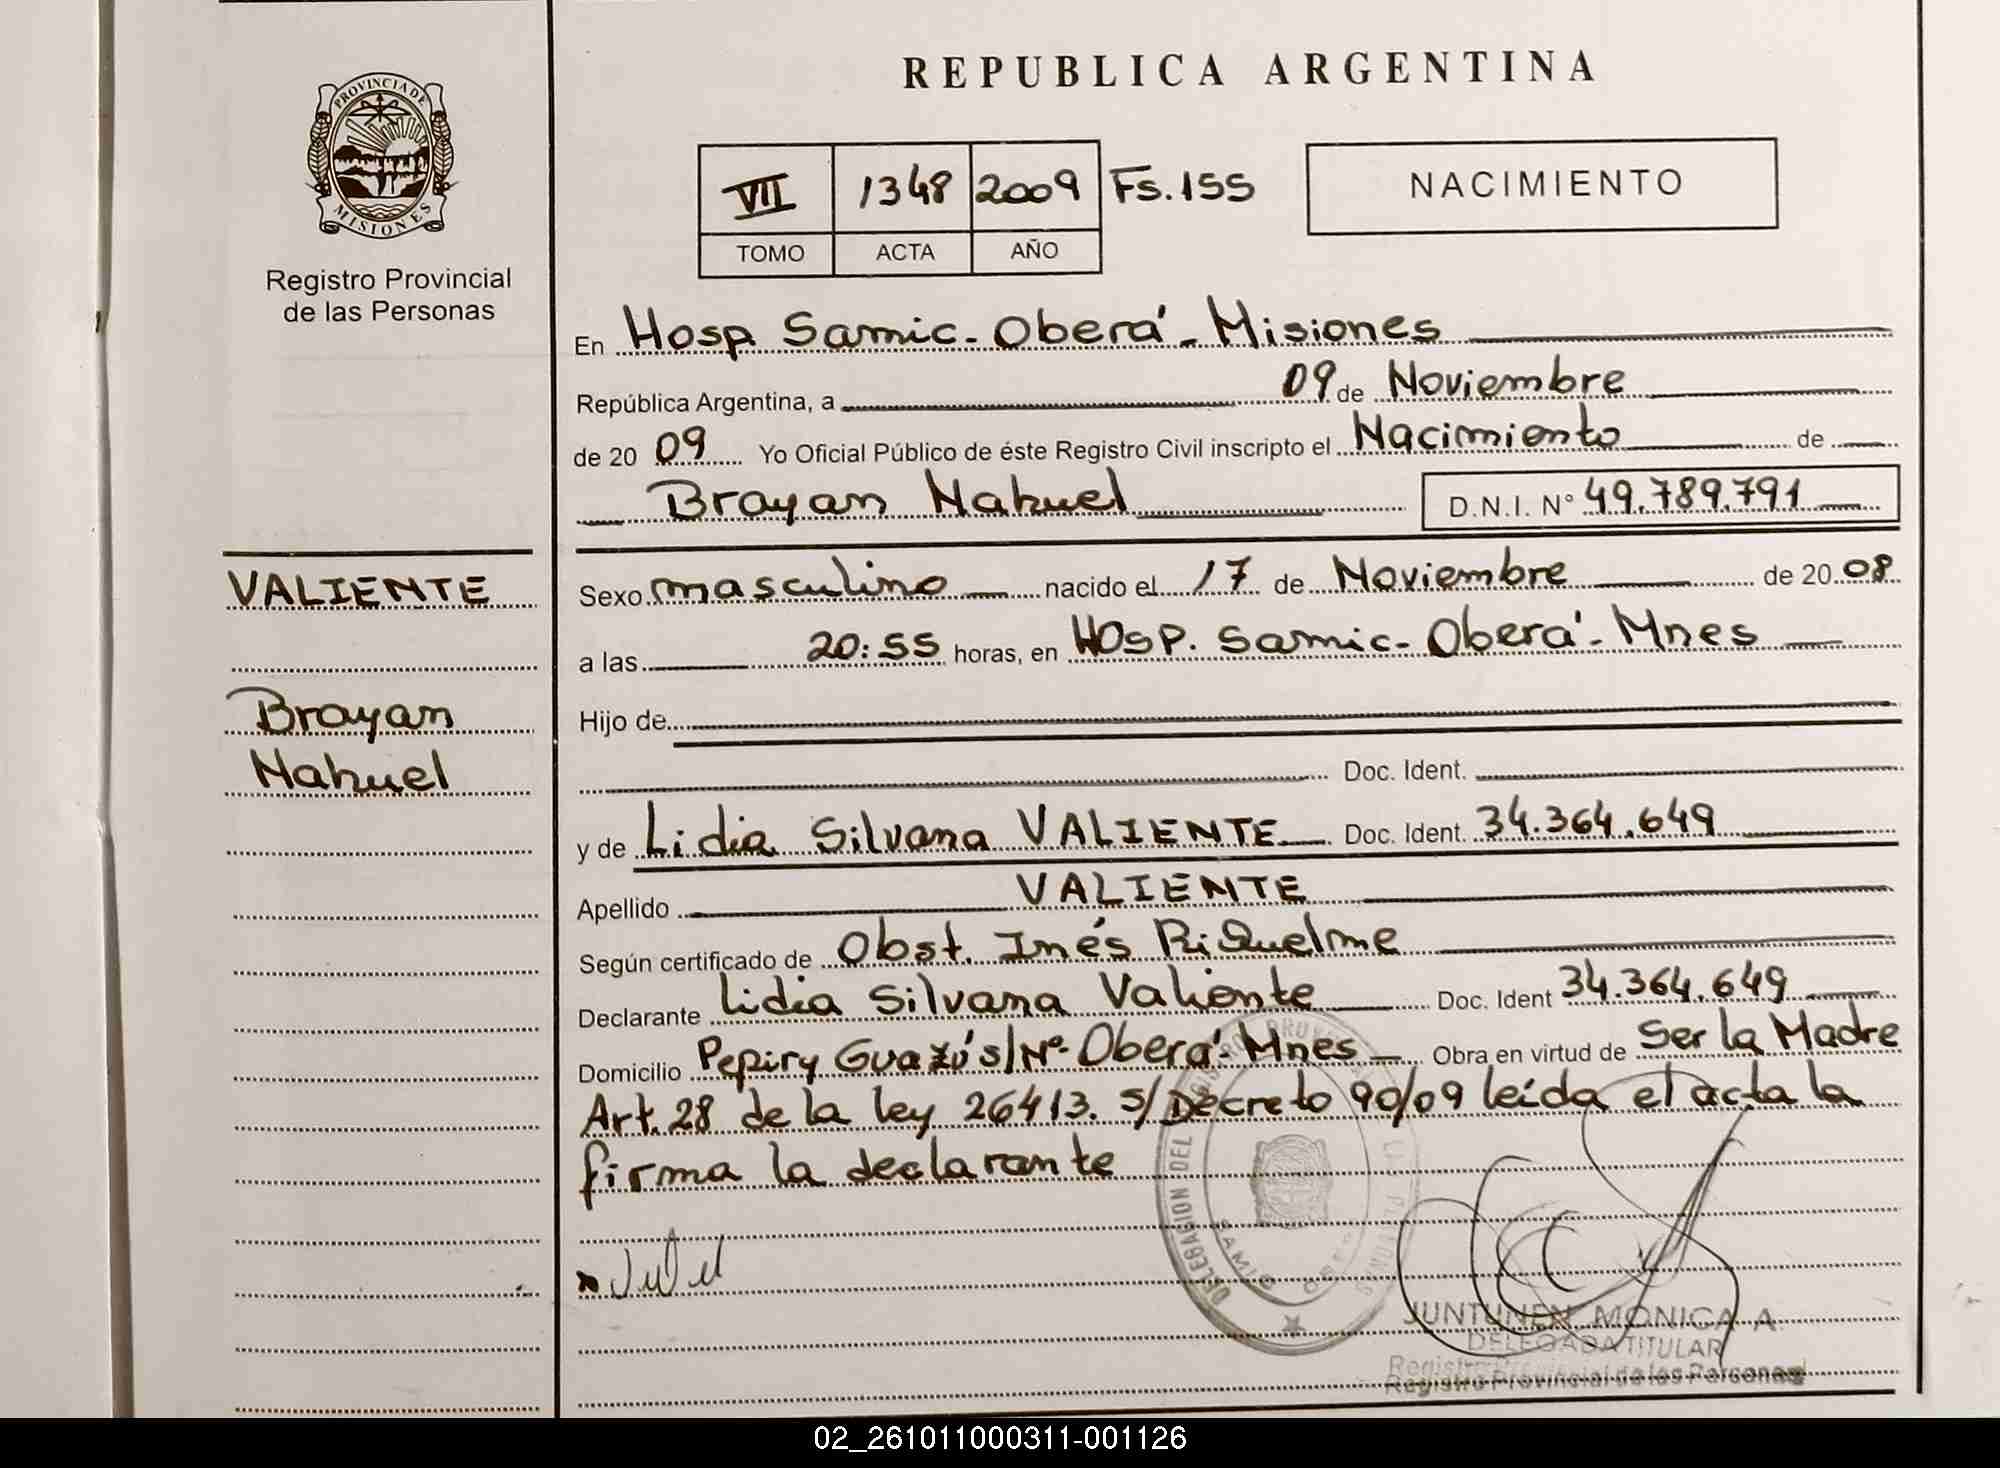 REPUBLICA ARGENTINA
PROVINCIA DE
MISIONES
Registro Provincial
de las Personas
VII 1348 2009 Fs. 155
TOMO ACTA AÑO
NACIMIENTO
En Hosp. Samic - Oberá - Misiones
República Argentina, a 09 de Noviembre
de 20 09 Yo Oficial Público de éste Registro Civil inscripto el Nacimiento de
Brayan Nahuel D.N.I. N° 49.789.791
VALIENTE
Brayan
Nahuel
Sexo masculino nacido el 17 de Noviembre de 20 08
a las 20:55 horas, en Hosp. Samic - Oberá - Mnes
Hijo de
Doc. Ident.
y de Lidia Silvana VALIENTE Doc. Ident. 34.364.649
Apellido VALIENTE
Según certificado de Obst. Inés Riquelme
Declarante Lidia Silvana Valiente Doc. Ident 34.364.649
Domicilio Pepiry Guazú s/Nº - Oberá - Mnes Obra en virtud de Ser la Madre
Art. 28 de la ley 26413. S/Decreto 90/09 leída el acta la
firma la declarante
DELEGACION DEL
SAMIC
JUNTUNEN MONICA A.
DELEGADA TITULAR
Registro Provincial de las Personas
02_261011000311-001126